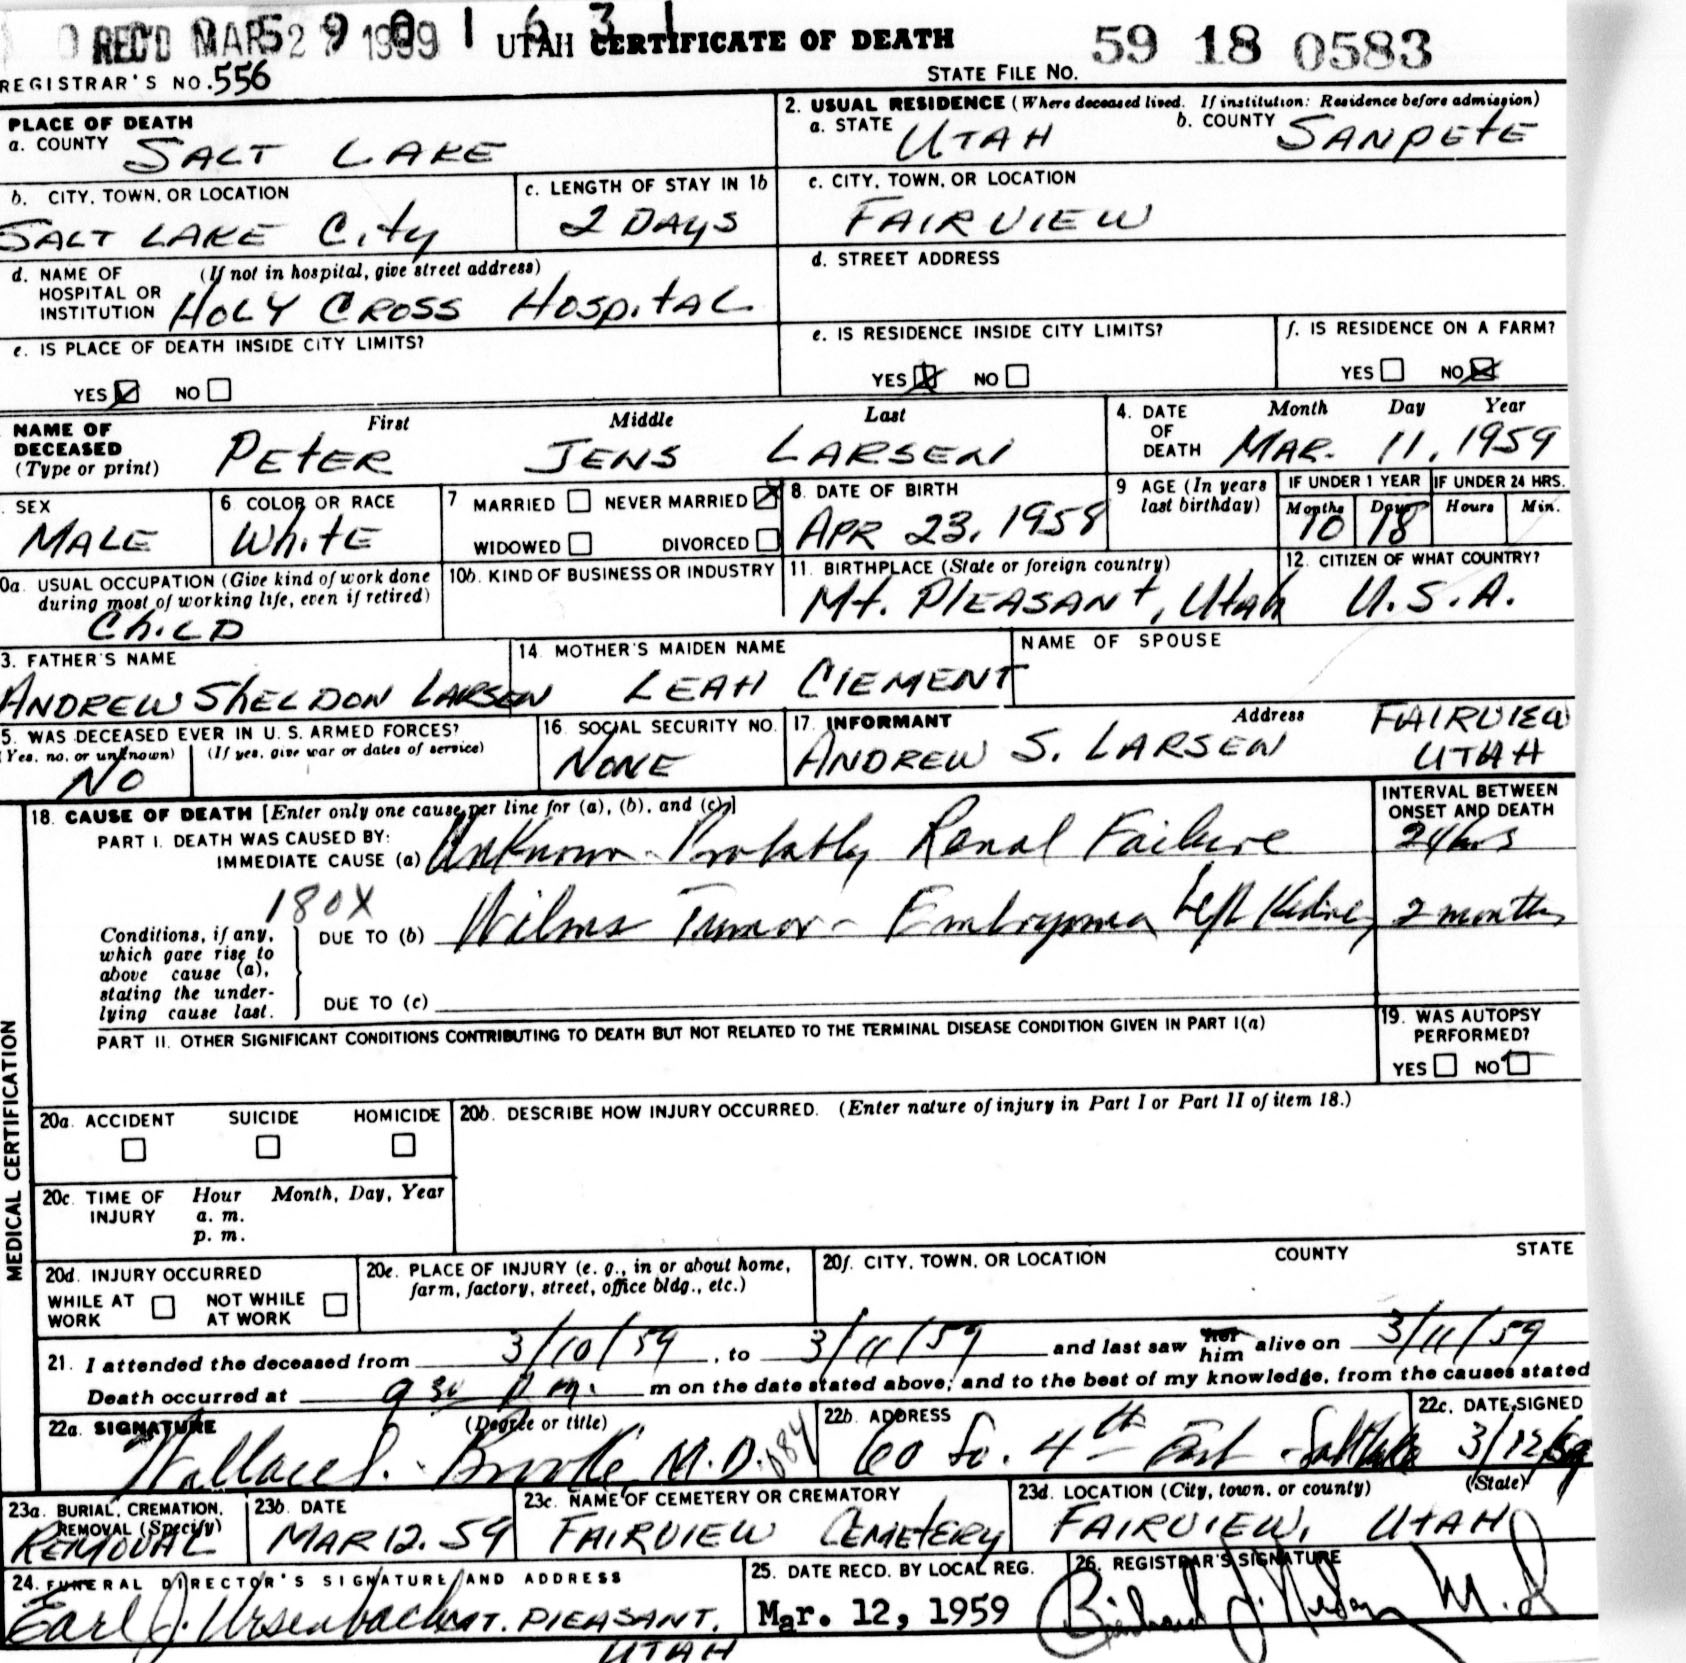 REC'D MAR 2 9 1959 1 6 3 1
UTAH CERTIFICATE OF DEATH 59 18 0583
REGISTRAR'S NO. 556 STATE FILE NO.
PLACE OF DEATH
a. COUNTY SALT LAKE
2. USUAL RESIDENCE (Where deceased lived. If institution: Residence before admission)
a. STATE UTAH b. COUNTY SANPETE
b. CITY, TOWN, OR LOCATION
SALT LAKE City
c. LENGTH OF STAY IN 1b
2 DAYS
c. CITY, TOWN, OR LOCATION
FAIRVIEW
d. NAME OF (If not in hospital, give street address)
HOSPITAL OR
INSTITUTION HOLY CROSS HOSPITAL
d. STREET ADDRESS
e. IS PLACE OF DEATH INSIDE CITY LIMITS?
YES NO
e. IS RESIDENCE INSIDE CITY LIMITS?
YES NO
f. IS RESIDENCE ON A FARM?
YES NO
NAME OF First Middle Last
DECEASED
(Type or print) PETER JENS LARSEN
4. DATE Month Day Year
OF
DEATH MAR. 11, 1959
SEX
MALE
6 COLOR OR RACE
White
7 MARRIED NEVER MARRIED
WIDOWED DIVORCED
8. DATE OF BIRTH
APR 23, 1958
9 AGE (In years
last birthday)
IF UNDER 1 YEAR
Months Days
10 18
IF UNDER 24 HRS.
Hours Min.
0a. USUAL OCCUPATION (Give kind of work done
during most of working life, even if retired)
Child
10b. KIND OF BUSINESS OR INDUSTRY
11. BIRTHPLACE (State or foreign country)
Mt. PLEASANT, Utah
12. CITIZEN OF WHAT COUNTRY?
U.S.A.
3. FATHER'S NAME
ANDREW SHELDON LARSEN
14. MOTHER'S MAIDEN NAME
LEAH CLEMENT
NAME OF SPOUSE
5. WAS DECEASED EVER IN U. S. ARMED FORCES?
(Yes, no, or unknown) (If yes, give war or dates of service)
NO
16. SOCIAL SECURITY NO.
NONE
17. INFORMANT Address
ANDREW S. LARSEN FAIRVIEW
UTAH
18. CAUSE OF DEATH [Enter only one cause per line for (a), (b), and (c)]
INTERVAL BETWEEN
ONSET AND DEATH
PART I. DEATH WAS CAUSED BY:
IMMEDIATE CAUSE (a) Unknown - Probably Renal Failure 24 hrs
180X
Conditions, if any,
which gave rise to
above cause (a),
stating the under-
lying cause last.
DUE TO (b) Wilms Tumor - Embryoma Left Kidney 2 months
DUE TO (c)
PART II. OTHER SIGNIFICANT CONDITIONS CONTRIBUTING TO DEATH BUT NOT RELATED TO THE TERMINAL DISEASE CONDITION GIVEN IN PART I(a)
19. WAS AUTOPSY
PERFORMED?
YES NO
MEDICAL CERTIFICATION
20a. ACCIDENT SUICIDE HOMICIDE
20b. DESCRIBE HOW INJURY OCCURRED. (Enter nature of injury in Part I or Part II of item 18.)
20c. TIME OF Hour Month, Day, Year
INJURY a. m.
p. m.
20d. INJURY OCCURRED
WHILE AT NOT WHILE
WORK AT WORK
20e. PLACE OF INJURY (e. g., in or about home,
farm, factory, street, office bldg., etc.)
20f. CITY, TOWN, OR LOCATION COUNTY STATE
21. I attended the deceased from 3/10/59, to 3/11/59 and last saw her him alive on 3/11/59
Death occurred at 9 30 p m. m on the date stated above; and to the best of my knowledge, from the causes stated
22a. SIGNATURE (Degree or title)
Wallace S. Brooke M.D.
22b. ADDRESS
60 So. 4th East - Salt Lake
22c. DATE SIGNED
3/12/59
23a. BURIAL, CREMATION,
REMOVAL (Specify)
REMOVAL
23b. DATE
MAR 12. 59
23c. NAME OF CEMETERY OR CREMATORY
FAIRVIEW CEMETERY
23d. LOCATION (City, town, or county) (State)
FAIRVIEW, UTAH
24. FUNERAL DIRECTOR'S SIGNATURE AND ADDRESS
Earl J. Ursenbach MT. PLEASANT,
UTAH
25. DATE RECD. BY LOCAL REG.
Mar. 12, 1959
26. REGISTRAR'S SIGNATURE
M.D.